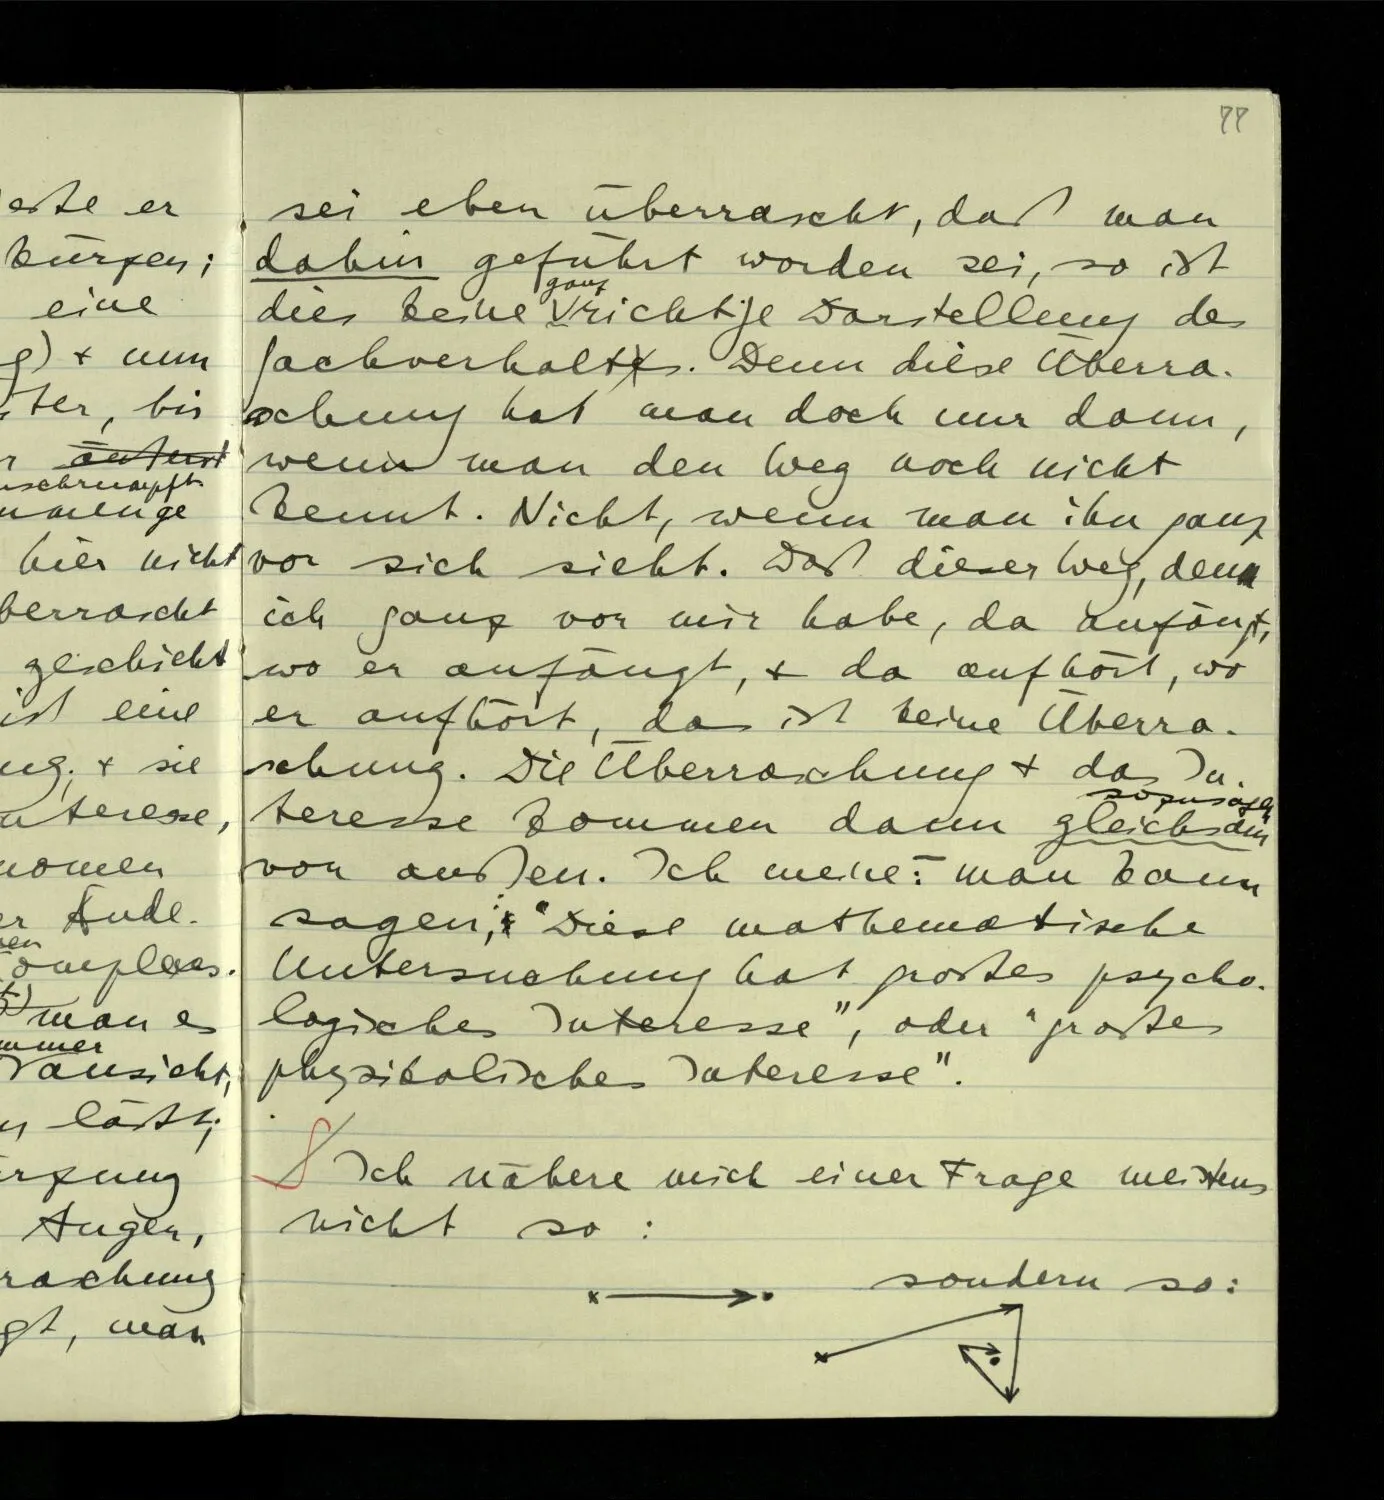 este er
kürzen;
eine
g) + nun
ter, bis
r äußerst
nschrumpft
hier nicht
berrascht
geschieht
ist eine
ng; + sie
nteresse,
nomen
er Ende.
omplexes.
man es
mmer
ransicht,
n läßt;
rzung
Augen,
raschung
gt, man
77
sei eben überrascht, daß man
dahin geführt worden sei, so ist
ganz
dies keine richtige Darstellung des
Sachverhalts. Denn diese Überra-
schung hat man doch nur dann,
wenn man den Weg noch nicht
kennt. Nicht, wenn man ihn ganz
vor sich sieht. Daß dieser Weg, den
ich ganz vor mir habe, da anfängt,
wo er anfängt, + da aufhört, wo
er aufhört, das ist keine Überra-
schung. Die Überraschung + das In-
sozusagen
teresse kommen dann gleichsam
von außen. Ich meine: man kann
sagen: "Diese mathematische
Untersuchung hat großes psycho-
logisches Interesse", oder "großes
physikalisches Interesse".
Ich nähere mich einer Frage meistens
nicht so:
sondern so: